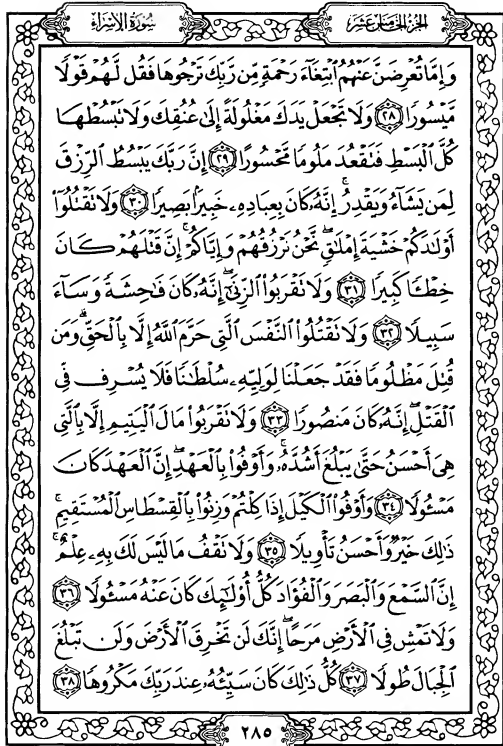 سورة الإسراء
الجزء الخامس عشر
وَإِمَّا تُعْرِضَنَّ عَنْهُمُ ٱبْتِغَآءَ رَحْمَةٍ مِّن رَّبِّكَ تَرْجُوهَا فَقُل لَّهُمْ قَوْلًا
مَّيْسُورًا ٢٨ وَلَا تَجْعَلْ يَدَكَ مَغْلُولَةً إِلَىٰ عُنُقِكَ وَلَا تَبْسُطْهَا
كُلَّ ٱلْبَسْطِ فَتَقْعُدَ مَلُومًا مَّحْسُورًا ٢٩ إِنَّ رَبَّكَ يَبْسُطُ ٱلرِّزْقَ
لِمَن يَشَآءُ وَيَقْدِرُ ۚ إِنَّهُۥ كَانَ بِعِبَادِهِۦ خَبِيرًۢا بَصِيرًا ٣٠ وَلَا تَقْتُلُوٓا۟
أَوْلَـٰدَكُمْ خَشْيَةَ إِمْلَـٰقٍ ۖ نَّحْنُ نَرْزُقُهُمْ وَإِيَّاكُمْ ۚ إِنَّ قَتْلَهُمْ كَانَ
خِطْـًٔا كَبِيرًا ٣١ وَلَا تَقْرَبُوا۟ ٱلزِّنَىٰٓ ۖ إِنَّهُۥ كَانَ فَـٰحِشَةً وَسَآءَ
سَبِيلًا ٣٢ وَلَا تَقْتُلُوا۟ ٱلنَّفْسَ ٱلَّتِى حَرَّمَ ٱللَّهُ إِلَّا بِٱلْحَقِّ ۗ وَمَن
قُتِلَ مَظْلُومًا فَقَدْ جَعَلْنَا لِوَلِيِّهِۦ سُلْطَـٰنًا فَلَا يُسْرِف فِّى
ٱلْقَتْلِ ۖ إِنَّهُۥ كَانَ مَنصُورًا ٣٣ وَلَا تَقْرَبُوا۟ مَالَ ٱلْيَتِيمِ إِلَّا بِٱلَّتِى
هِىَ أَحْسَنُ حَتَّىٰ يَبْلُغَ أَشُدَّهُۥ ۚ وَأَوْفُوا۟ بِٱلْعَهْدِ ۖ إِنَّ ٱلْعَهْدَ كَانَ
مَسْـُٔولًا ٣٤ وَأَوْفُوا۟ ٱلْكَيْلَ إِذَا كِلْتُمْ وَزِنُوا۟ بِٱلْقِسْطَاسِ ٱلْمُسْتَقِيمِ ۚ
ذَٰلِكَ خَيْرٌ وَأَحْسَنُ تَأْوِيلًا ٣٥ وَلَا تَقْفُ مَا لَيْسَ لَكَ بِهِۦ عِلْمٌ ۚ
إِنَّ ٱلسَّمْعَ وَٱلْبَصَرَ وَٱلْفُؤَادَ كُلُّ أُو۟لَـٰٓئِكَ كَانَ عَنْهُ مَسْـُٔولًا ٣٦
وَلَا تَمْشِ فِى ٱلْأَرْضِ مَرَحًا ۖ إِنَّكَ لَن تَخْرِقَ ٱلْأَرْضَ وَلَن تَبْلُغَ
ٱلْجِبَالَ طُولًا ٣٧ كُلُّ ذَٰلِكَ كَانَ سَيِّئُهُۥ عِندَ رَبِّكَ مَكْرُوهًا ٣٨
٢٨٥